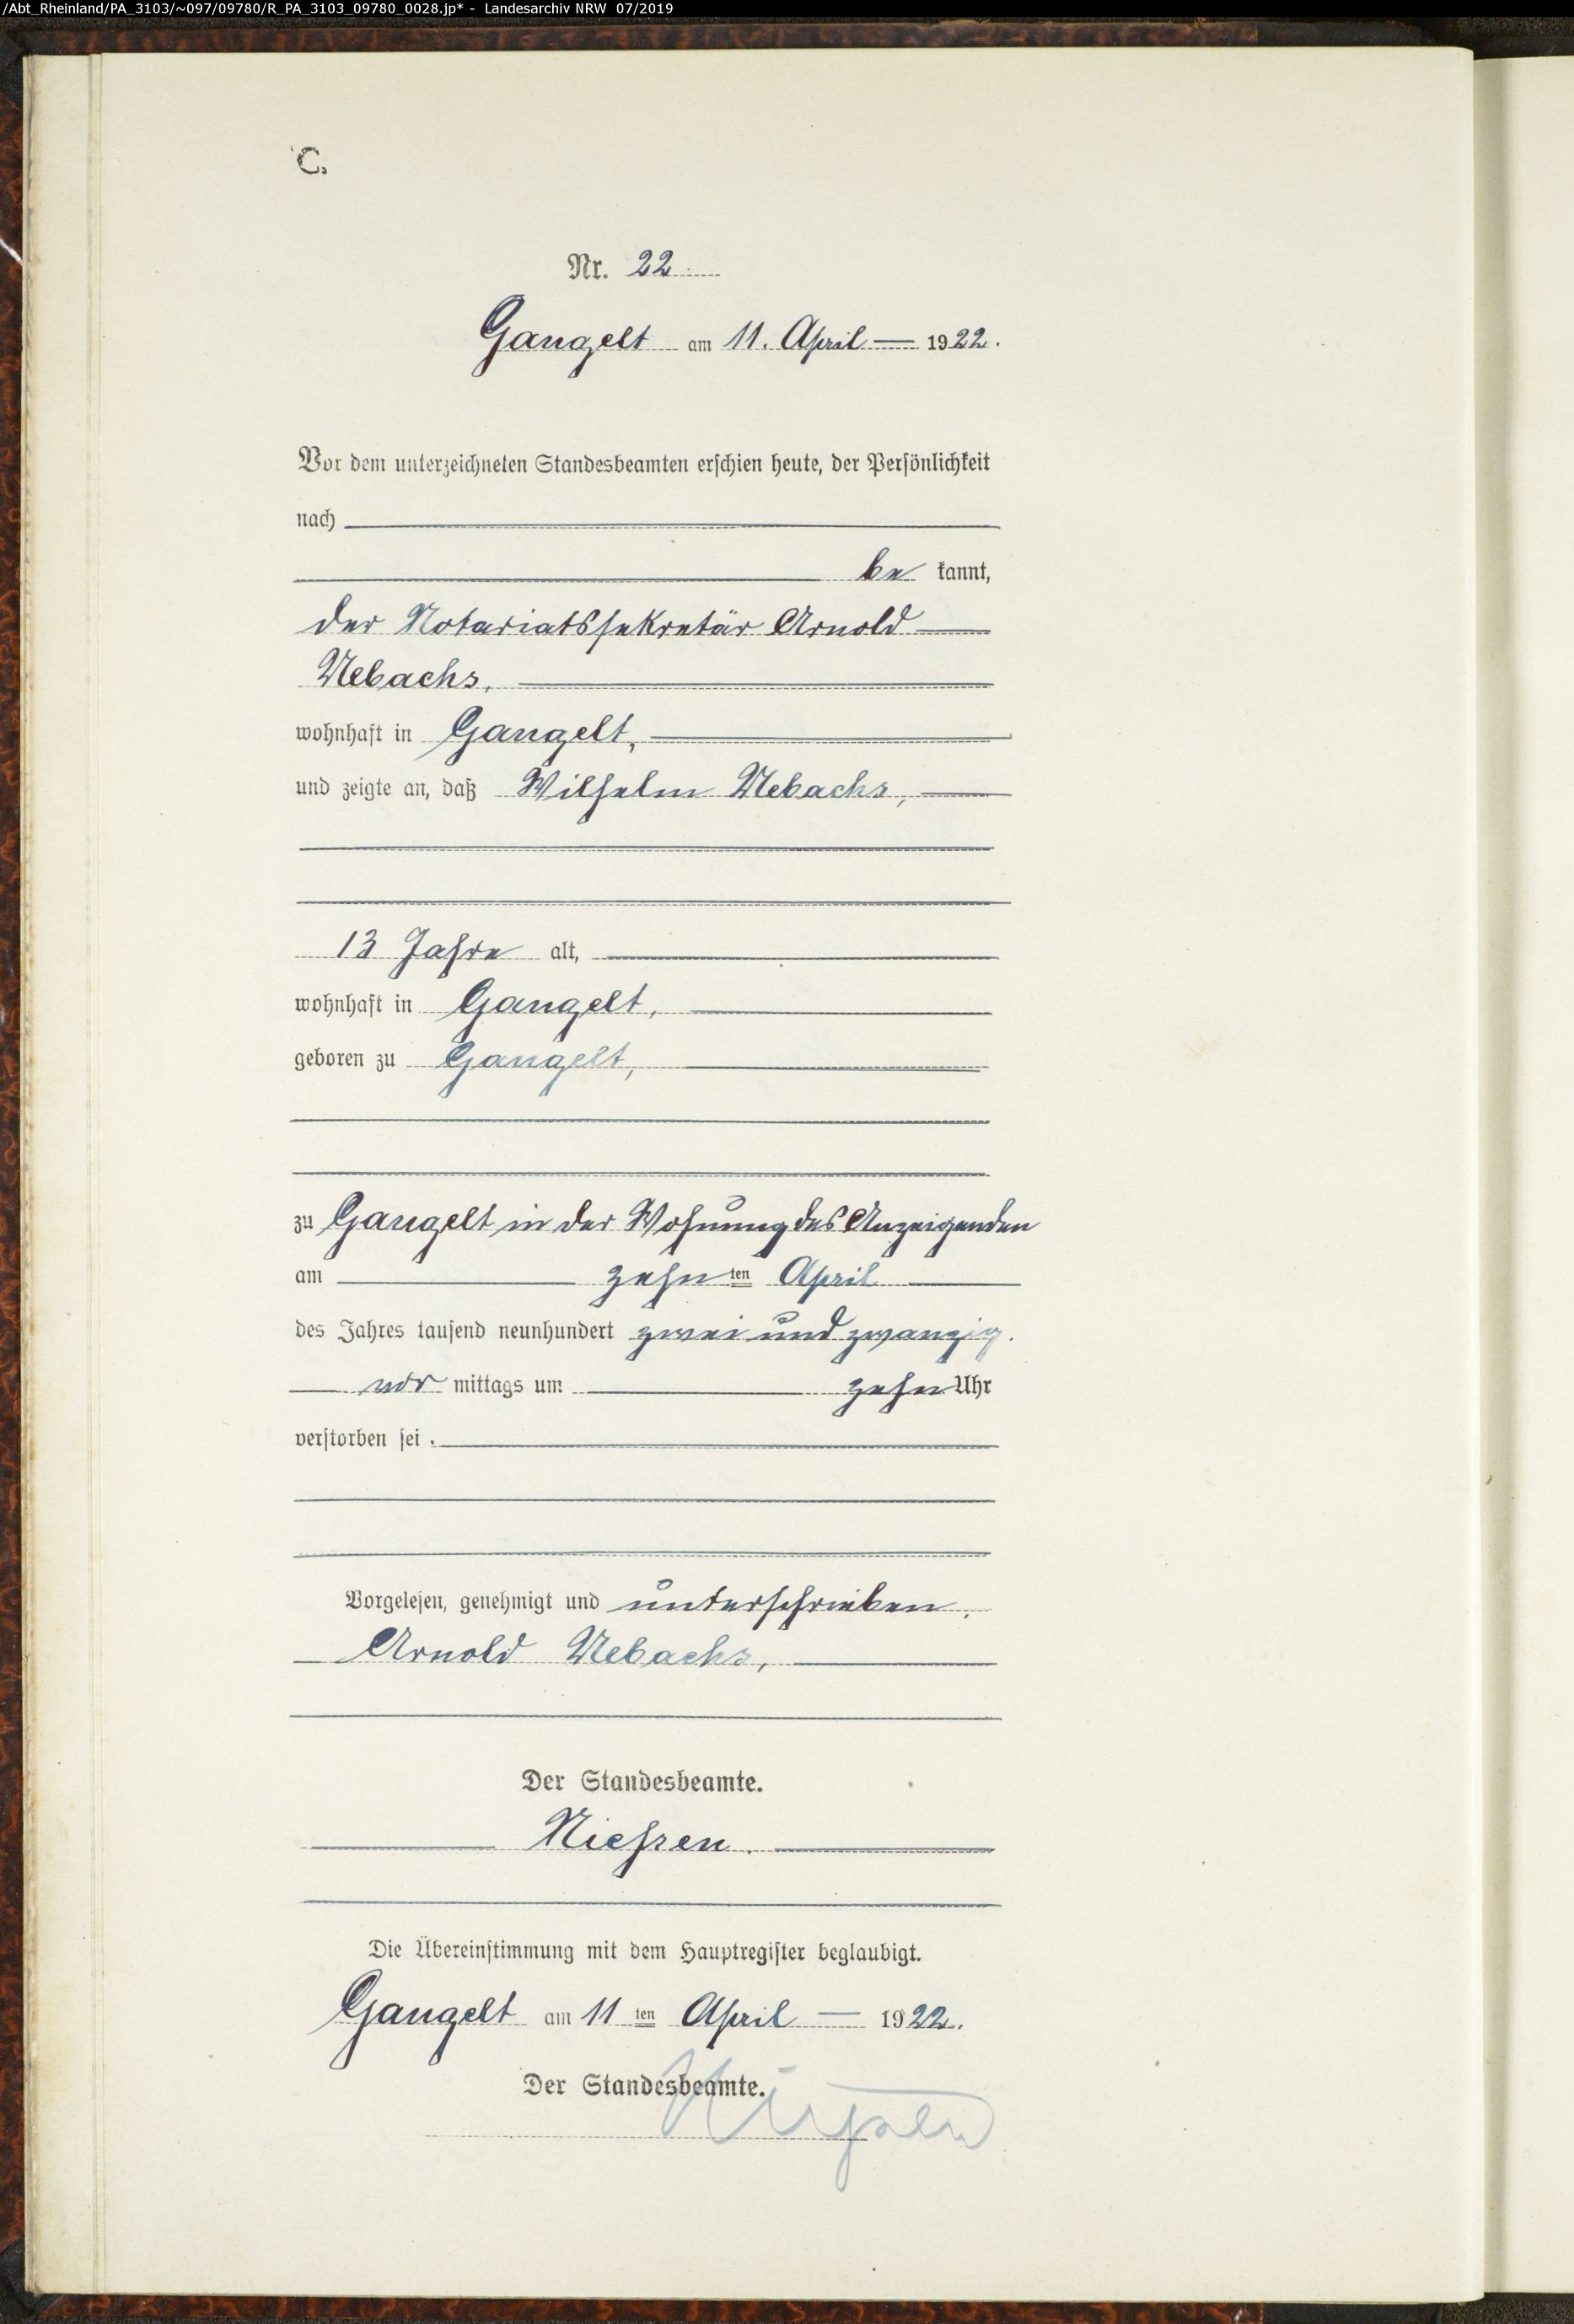 /Abt_Rheinland/PA_3103/~097/09780/R_PA_3103_09780_0028.jp* - Landesarchiv NRW 07/2019
C.
Nr. 22
Gangelt am 11. April 1922.
Vor dem unterzeichneten Standesbeamten erschien heute, der Persönlichkeit
nach
be kannt,
der Notariatssekretär Arnold
Uebachs,
wohnhaft in Gangelt,
und zeigte an, daß Wilhelm Uebachs,
13 Jahre alt,
wohnhaft in Gangelt,
geboren zu Gangelt,
zu Gangelt in der Wohnung des Anzeigenden
am zehn ten April
des Jahres tausend neunhundert zwei und zwanzig.
vor mittags um zehn Uhr
verstorben sei.
Vorgelesen, genehmigt und unterschrieben.
Arnold Uebachs,
Der Standesbeamte.
Nießen.
Die Übereinstimmung mit dem Hauptregister beglaubigt.
Gangelt am 11 ten April 1922.
Der Standesbeamte.
Nießen